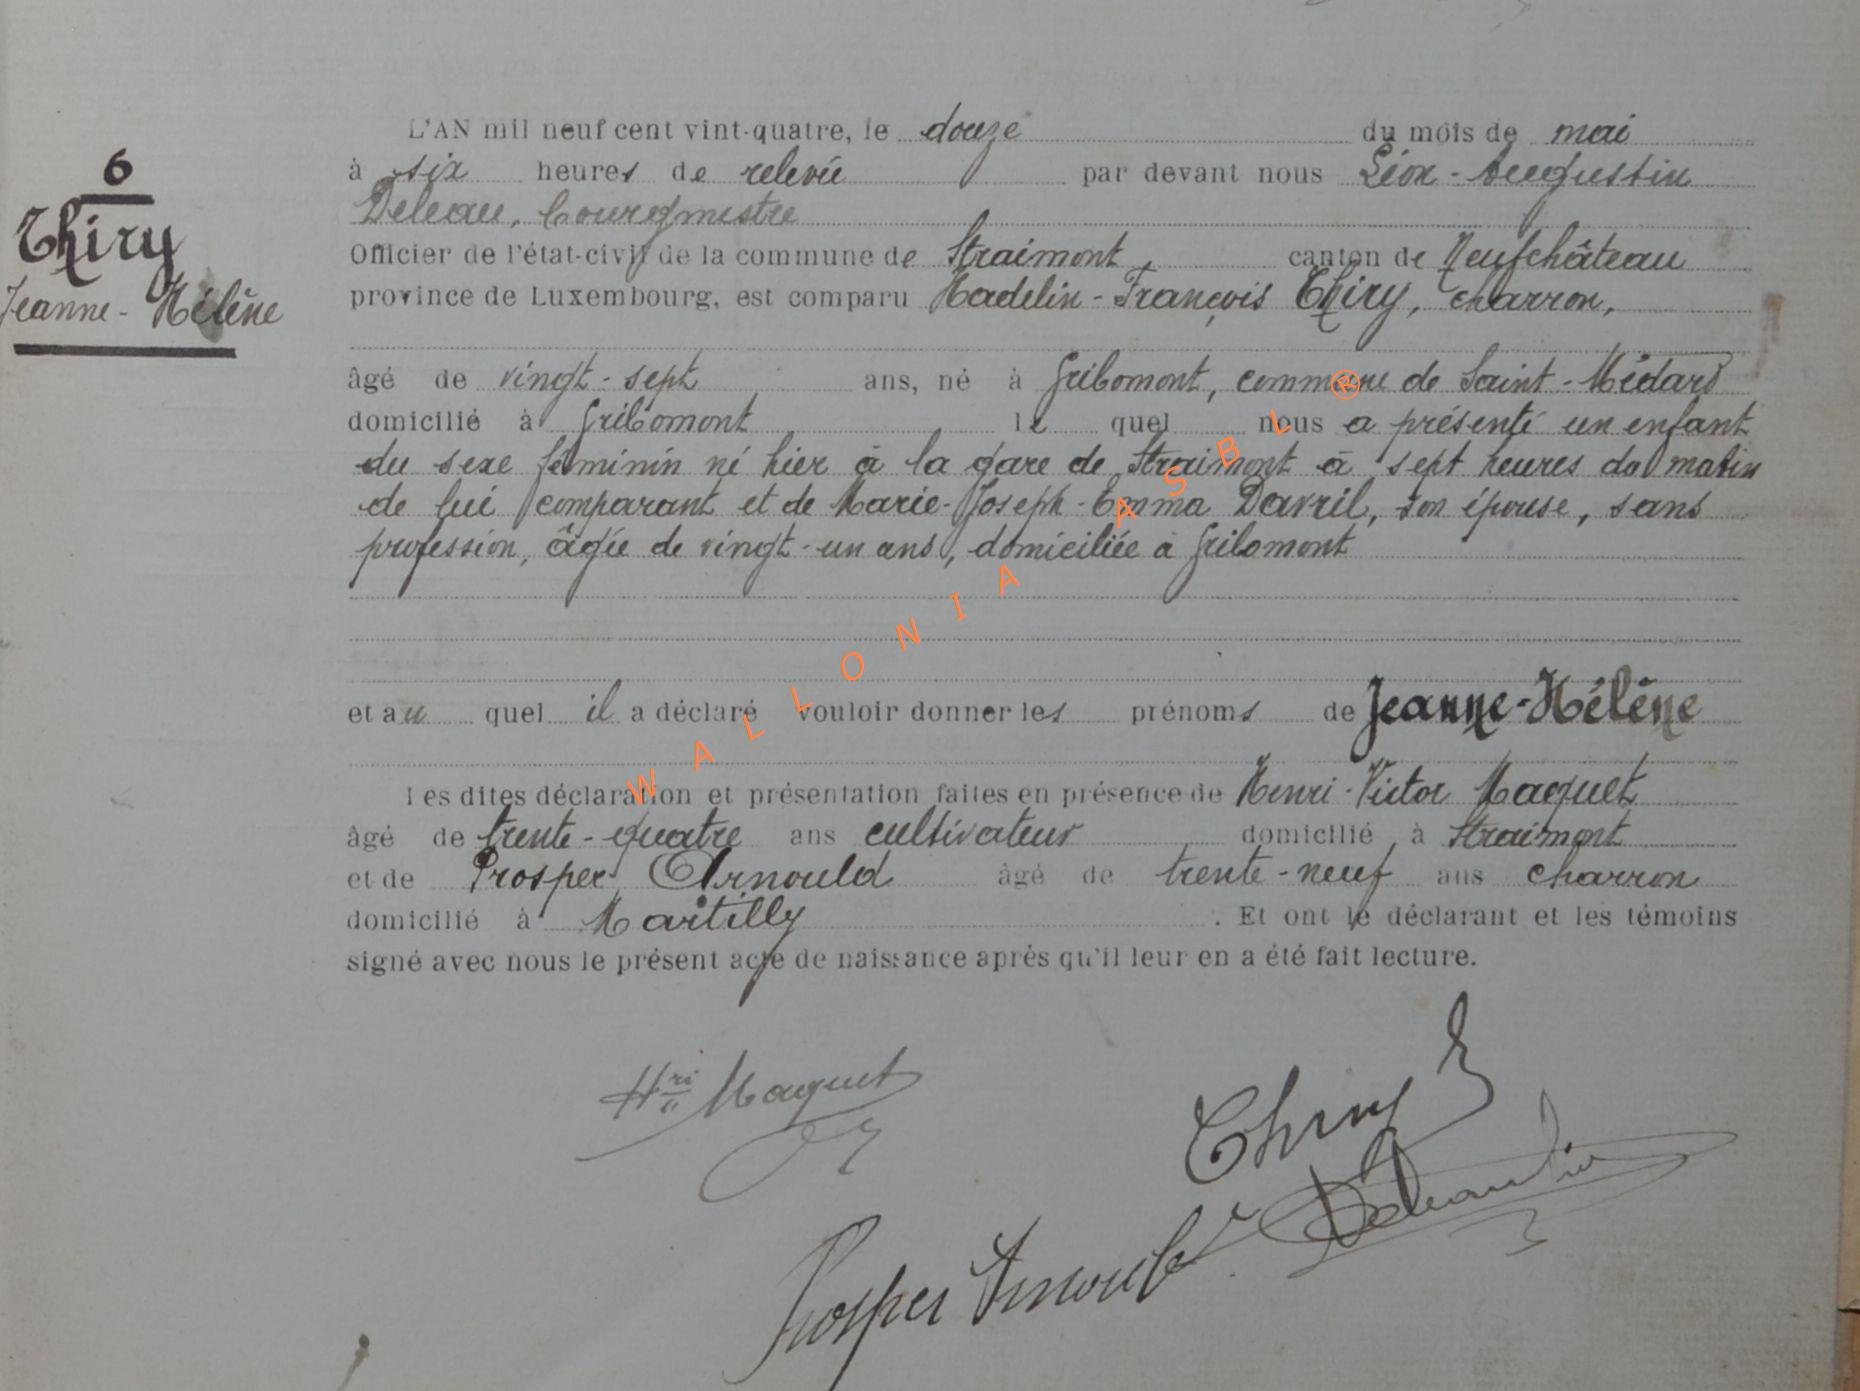 6
Thiry
Jeanne-Hélène
L'AN mil neuf cent vint-quatre, le douze du mois de mai
à six heures de relevée par devant nous Léon-Augustin
Deleau, bourgmestre
Officier de l'état-civil de la commune de Straimont canton de Neufchâteau
province de Luxembourg, est comparu Hadelin-François Thiry, charron,
âgé de vingt-sept ans, né à Gribomont, commune de Saint-Médard
domicilié à Gribomont le quel nous a présenté un enfant
du sexe féminin né hier à la gare de Straimont à sept heures du matin
de lui comparant et de Marie-Joseph-Emma Davril, son épouse, sans
profession, âgée de vingt-un ans, domiciliée à Gribomont
et au quel il a déclaré vouloir donner les prénoms de Jeanne-Hélène
Les dites déclaration et présentation faites en présence de Henri-Victor Maquet
âgé de trente-quatre ans cultivateur domicilié à Straimont
et de Prosper Arnould âgé de trente-neuf ans charron
domicilié à Martilly. Et ont le déclarant et les témoins
signé avec nous le présent acte de naissance après qu'il leur en a été fait lecture.
Hri Maquet
Thiry
Prosper Arnould
WALLONIA ASBL ®